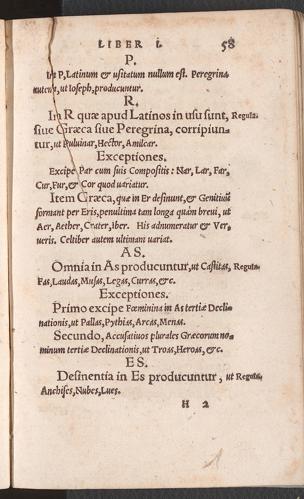 LIBER I. 58
P.
In P, Latinum & usitatum nullum est. Peregrina
autem, ut Ioseph, producuntur.
R.
In R quæ apud Latinos in usu sunt, Regula.
siue Græca siue Peregrina, corripiun-
tur, ut Puluinar, Hector, Amilcar.
Exceptiones.
Excipe Par cum suis Compositis: Nar, Lar, Far,
Cur, Fur, & Cor quod uariatur.
Item Græca, quæ in Er desinunt, & Genitiuū
formant per Eris, penultima tam longa quàm breui, ut
Aer, Aether, Crater, Iber. His adnumeratur & Ver,
ueris. Celtiber autem ultimam uariat.
AS.
Omnia in As producuntur, ut Castitas, Regula.
Fas, Laudas, Musas, Legas, Curras, &c.
Exceptiones.
Primo excipe Fœminina in As tertiæ Decli-
nationis, ut Pallas, Pythias, Arcas, Menas.
Secundo, Accusatiuos plurales Græcorum no-
minum tertiæ Declinationis, ut Troas, Heroas, &c.
ES.
Desinentia in Es producuntur, ut Regula.
Anchises, Nubes, Lues.
H 2